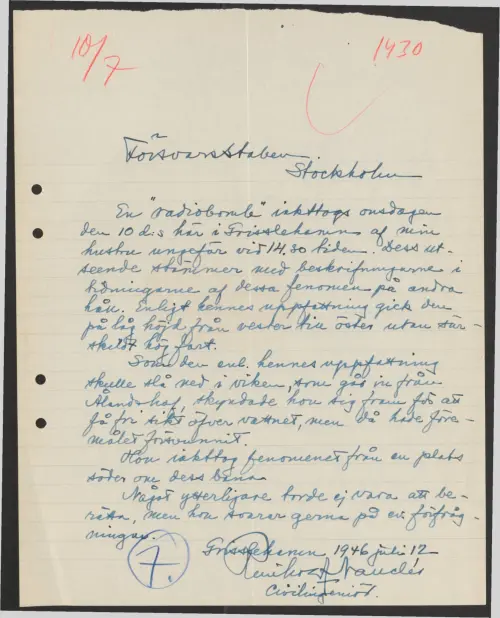 10/7
1430
Försvarsstaben
Stockholm
En "radiobomb" iakttogs onsdagen
den 10 d:s här i Grisslehamn af min
hustru ungefär vid 14.30 tiden. Dess ut-
seende stämmer med beskrifningarne i
tidningarne af dessa fenomen på andra
håll. Enligt hennes uppfattning gick den
på låg höjd från vester till öster utan sär-
skildt hög fart.
Som den enl. hennes uppfattning
skulle slå ned i viken, som går in från
Ålands haf, skyndade hon sig fram för att
få fri sikt öfver vattnet, men då hade före-
målet försvunnit.
Hon iakttog fenomenet från en plats
söder om dess bana.
Något ytterligare torde ej vara att be-
rätta, men hon svarar gerna på ev. förfråg-
ningar.
7.
Grisslehamn 1946 juli 12
Civilingeniör.